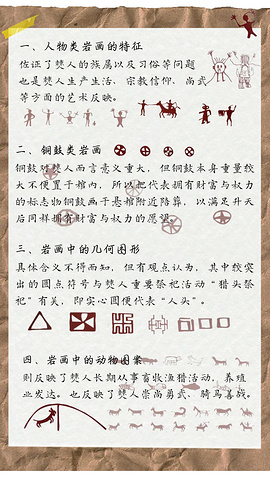 一、人物类岩画的特征
佐证了僰人的族属以及习俗等问题
也是僰人生产生活，宗教信仰，尚武
等方面的艺术反映。
二、铜鼓类岩画
铜鼓对僰人而言意义重大，但铜鼓本身重量较
大不便置于棺内，所以把代表拥有财富与权力
的标志物铜鼓画于悬棺附近陪葬，以满足升天
后同样拥有财富与权力的愿望。
三、岩画中的几何图形
具体含义不得而知，但有观点认为，其中较突
出的圆点符号与僰人重要祭祀活动“猎头祭
祀”有关，即实心圆便代表“人头”。
四、岩画中的动物图案
则反映了僰人长期从事畜牧渔猎活动，养殖
业发达。也反映了僰人崇尚勇武，骑马善战。